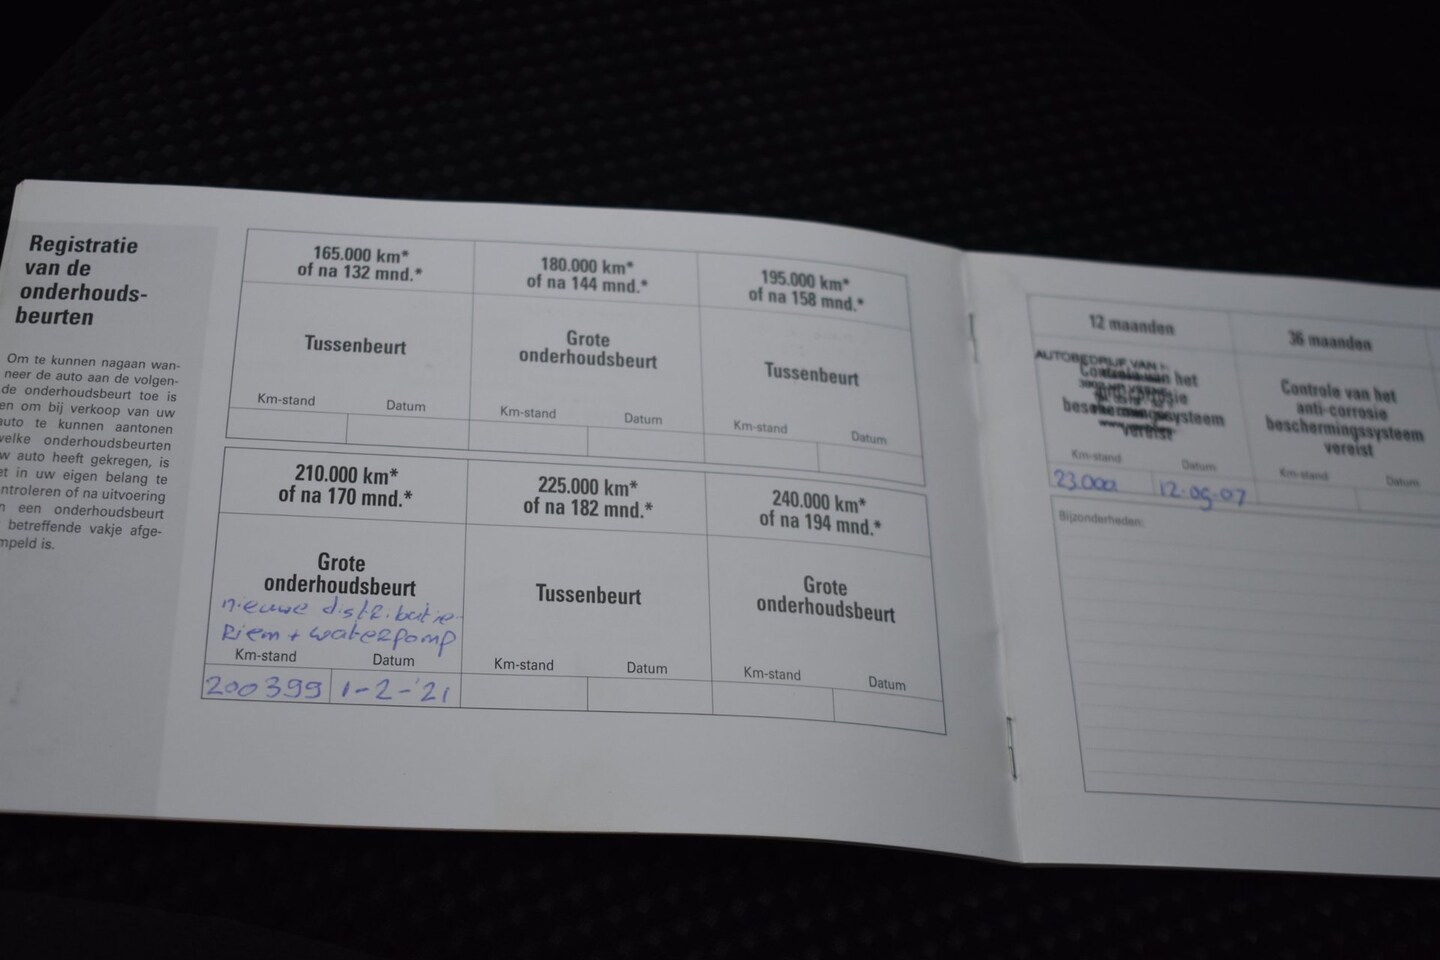 Registratie
van de
onderhouds-
beurten
Om te kunnen nagaan wan-
neer de auto aan de volgen-
de onderhoudsbeurt toe is
en om bij verkoop van uw
auto te kunnen aantonen
welke onderhoudsbeurten
uw auto heeft gekregen, is
het in uw eigen belang te
controleren of na uitvoering
een onderhoudsbeurt
betreffende vakje afge-
stempeld is.
165.000 km*
of na 132 mnd.*
Tussenbeurt
Km-stand Datum
180.000 km*
of na 144 mnd.*
Grote
onderhoudsbeurt
Km-stand Datum
195.000 km*
of na 158 mnd.*
Tussenbeurt
Km-stand Datum
210.000 km*
of na 170 mnd.*
Grote
onderhoudsbeurt
nieuwe distributie-
Riem + waterpomp
Km-stand Datum
200399 1-2-'21
225.000 km*
of na 182 mnd.*
Tussenbeurt
Km-stand Datum
240.000 km*
of na 194 mnd.*
Grote
onderhoudsbeurt
Km-stand Datum
12 maanden
AUTOBEDRIJF VAN
Controle van het
beschermingssysteem
vereist
Km-stand Datum
23.000 12-09-07
36 maanden
Controle van het
anti-corrosie
beschermingssysteem
vereist
Km-stand Datum
Bijzonderheden: